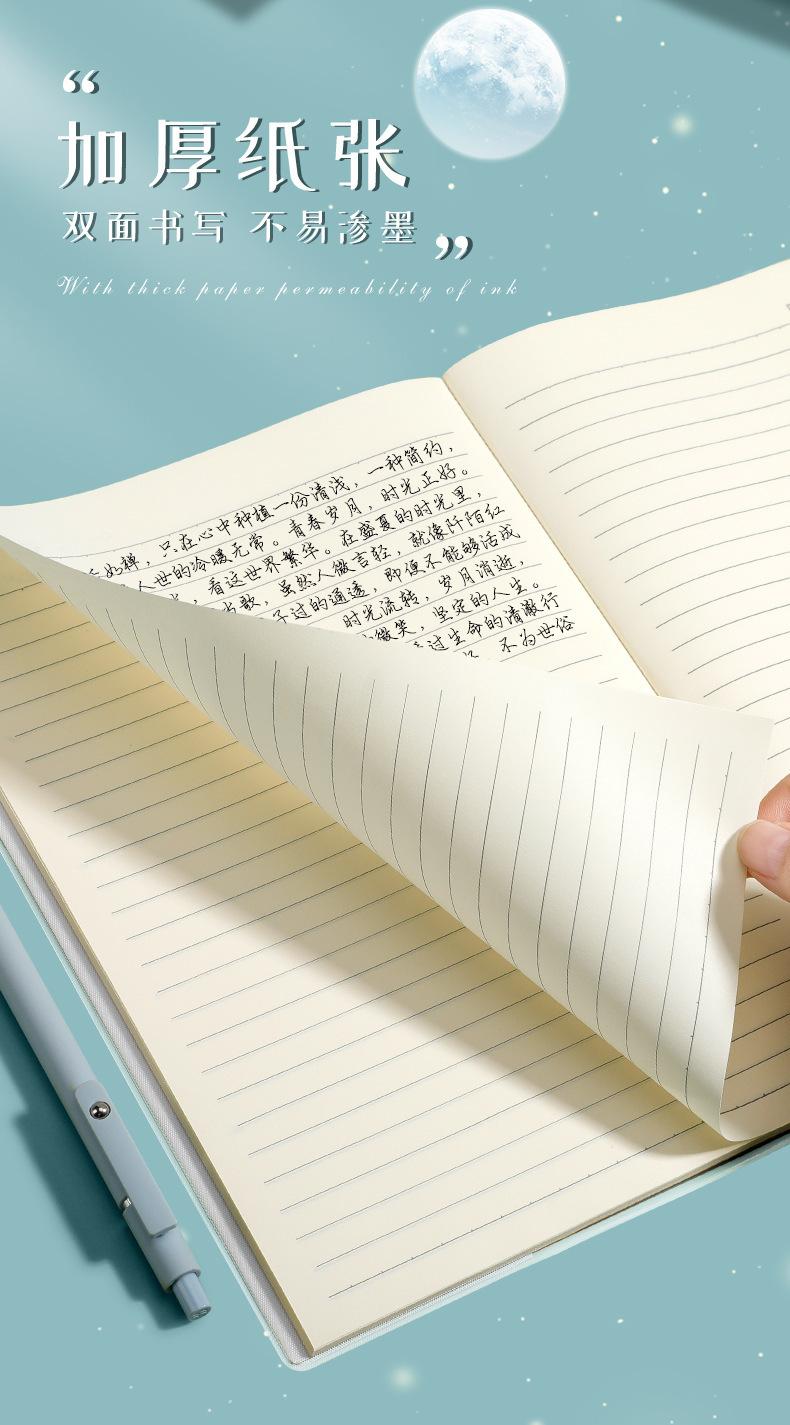 “
加厚纸张
双面书写 不易渗墨
”
With thick paper permeability of ink
如禅，只在心中种植一份清浅，一种简约，
人世的冷暖无常。青春岁月，时光正好。
，看这世界繁华。在盛夏的时光里，
歌，虽然人微言轻，就像阡陌红
过的通透，即便不能够活成
时光流转，岁月消逝，
微笑，坚定的人生。
过生命的清澈行
不为世俗